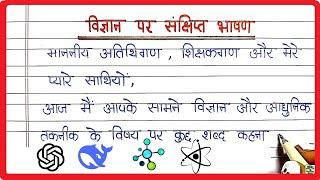 विज्ञान पर संक्षिप्त भाषण
माननीय अतिथिगण, शिक्षकगण और मेरे
प्यारे साथियों,
आज मैं आपके सामने विज्ञान और आधुनिक
तकनीक के विषय पर कुछ शब्द कहना